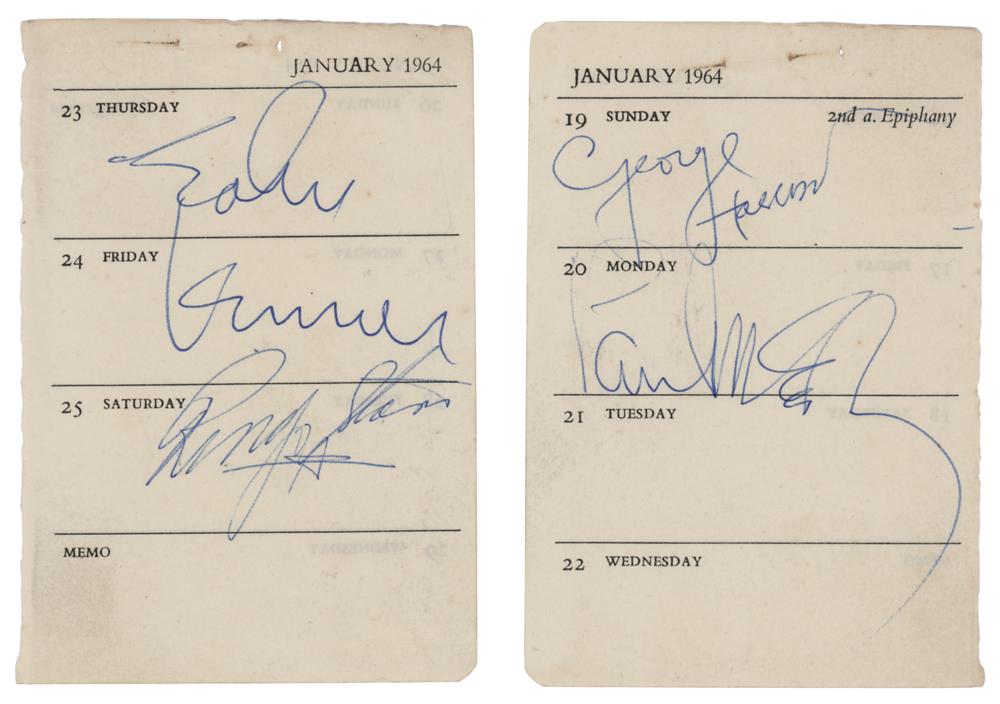 JANUARY 1964
23 THURSDAY
John
24 FRIDAY
Lennon
25 SATURDAY
Ringo Starr
MEMO
JANUARY 1964
19 SUNDAY 2nd a. Epiphany
George
Harrison
20 MONDAY
Paul McCartney
21 TUESDAY
22 WEDNESDAY